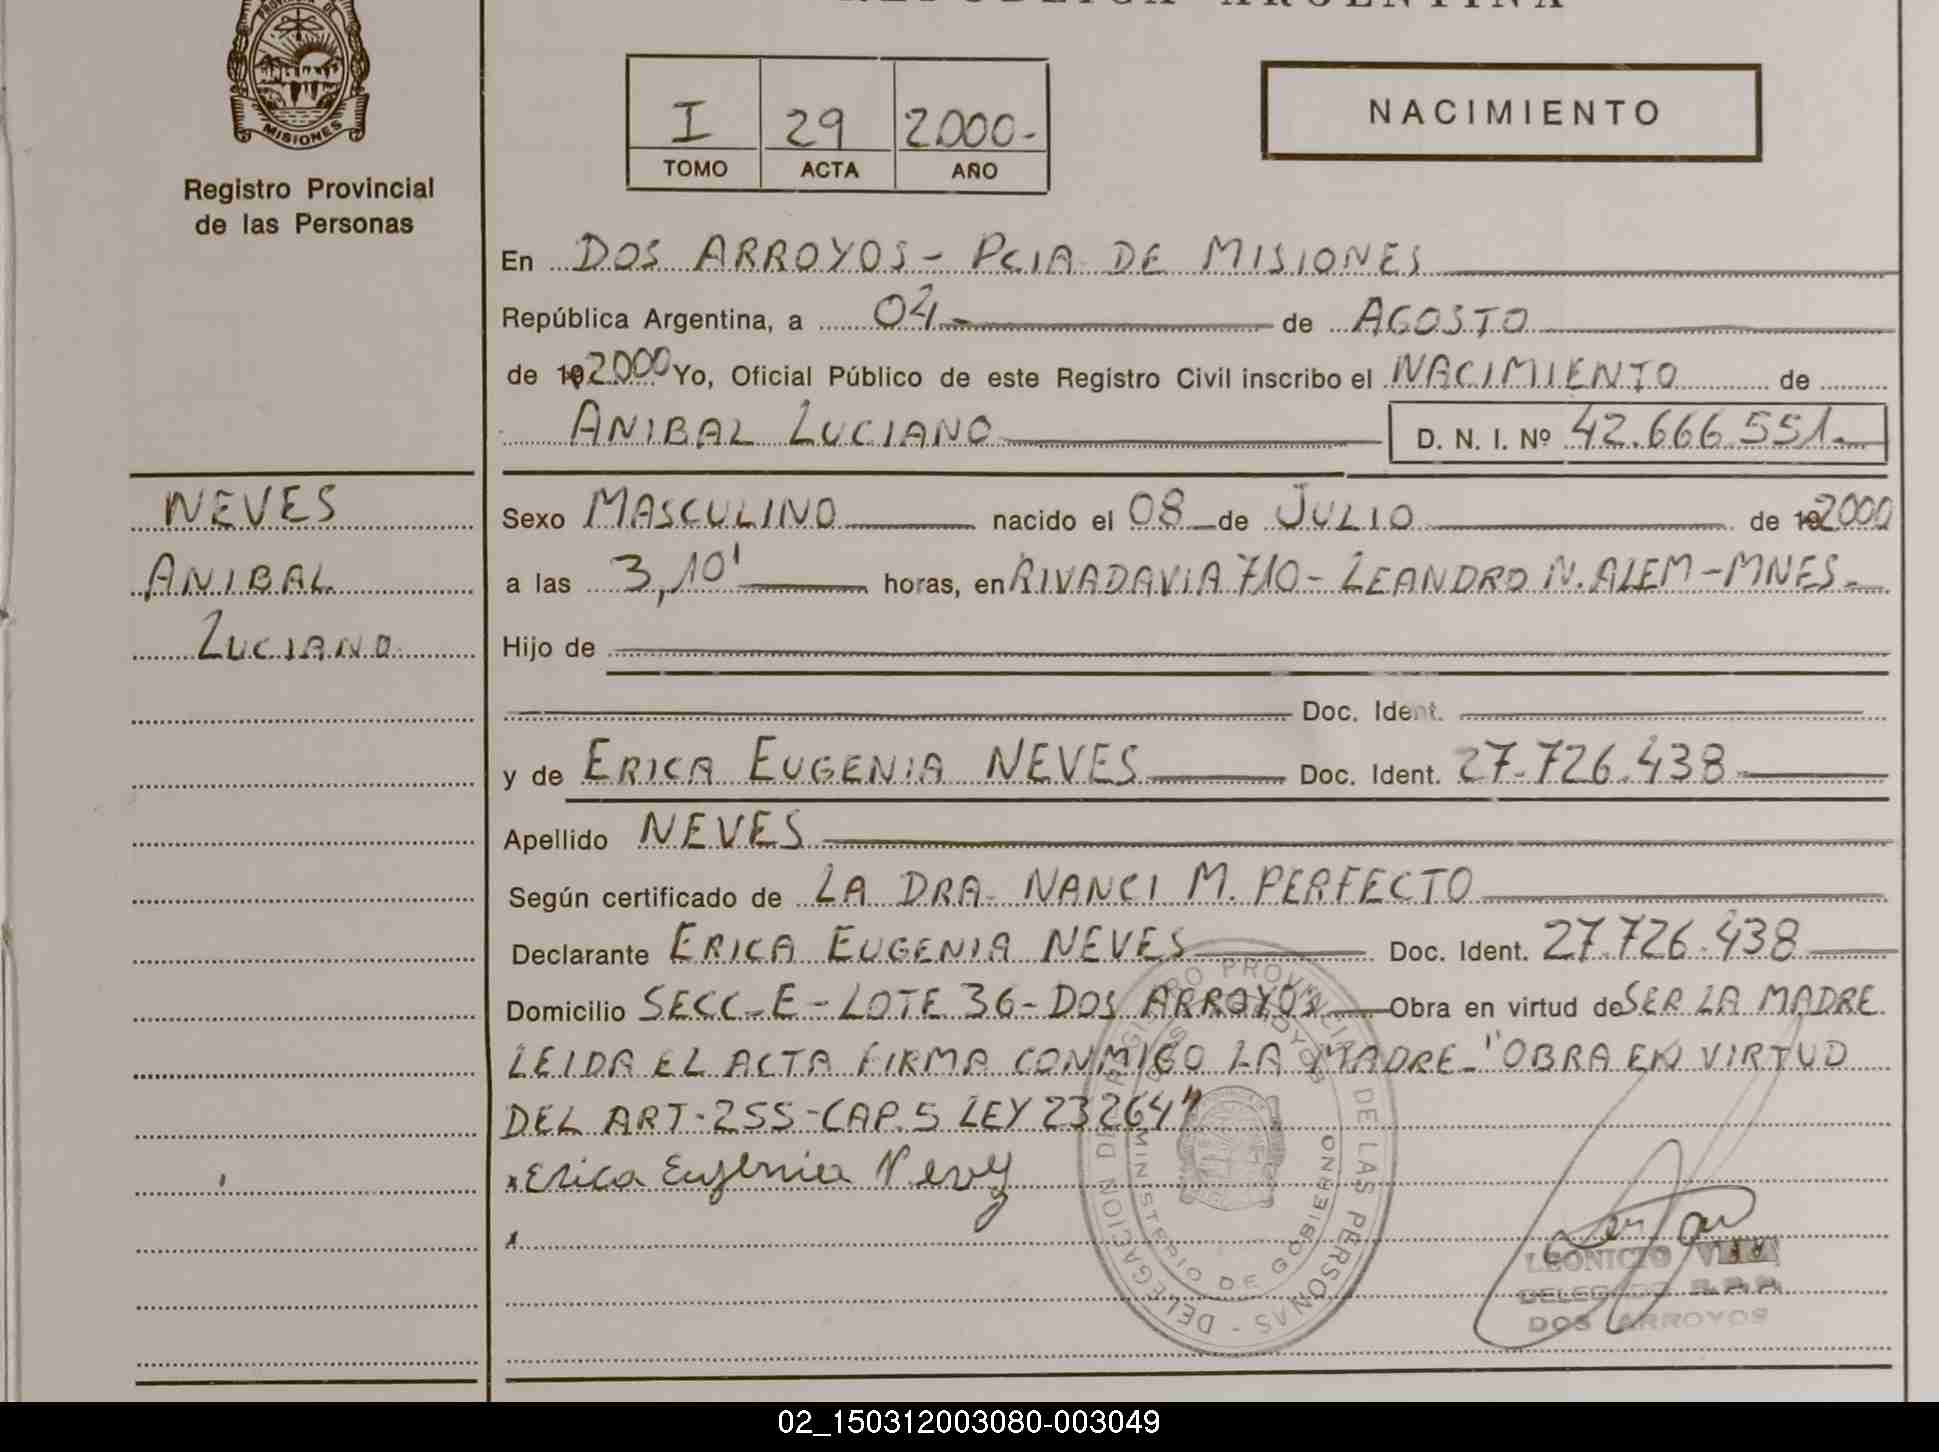 REPUBLICA ARGENTINA
PROVINCIA DE
MISIONES
Registro Provincial
de las Personas
I 29 2000-
TOMO ACTA AÑO
NACIMIENTO
En DOS ARROYOS - PCIA DE MISIONES
República Argentina, a 04 de AGOSTO
de 192000 Yo, Oficial Público de este Registro Civil inscribo el NACIMIENTO de
ANIBAL LUCIANO D. N. I. Nº 42.666.551.-
NEVES
ANIBAL
LUCIANO
Sexo MASCULINO nacido el 08 de JULIO de 192000
a las 3,10' horas, en RIVADAVIA 710 - LEANDRO N. ALEM - MNES.
Hijo de
Doc. Ident.
y de ERICA EUGENIA NEVES Doc. Ident. 27.726.438
Apellido NEVES
Según certificado de LA DRA. NANCI M. PERFECTO
Declarante ERICA EUGENIA NEVES Doc. Ident. 27.726.438
Domicilio SECC-E - LOTE 36 - DOS ARROYOS Obra en virtud de SER LA MADRE
LEIDA EL ACTA FIRMA CONMIGO LA MADRE - "OBRA EN VIRTUD
DEL ART-255-CAP.5 LEY 23264"
x Erica Eugenia Nevy
x
DELEGACION DE REGISTRO PROVINCIAL DE LAS PERSONAS -
DOS ARROYOS
MINISTERIO DE GOBIERNO
LEONICIO
DELEGADO R.P.P.
DOS ARROYOS
02_150312003080-003049